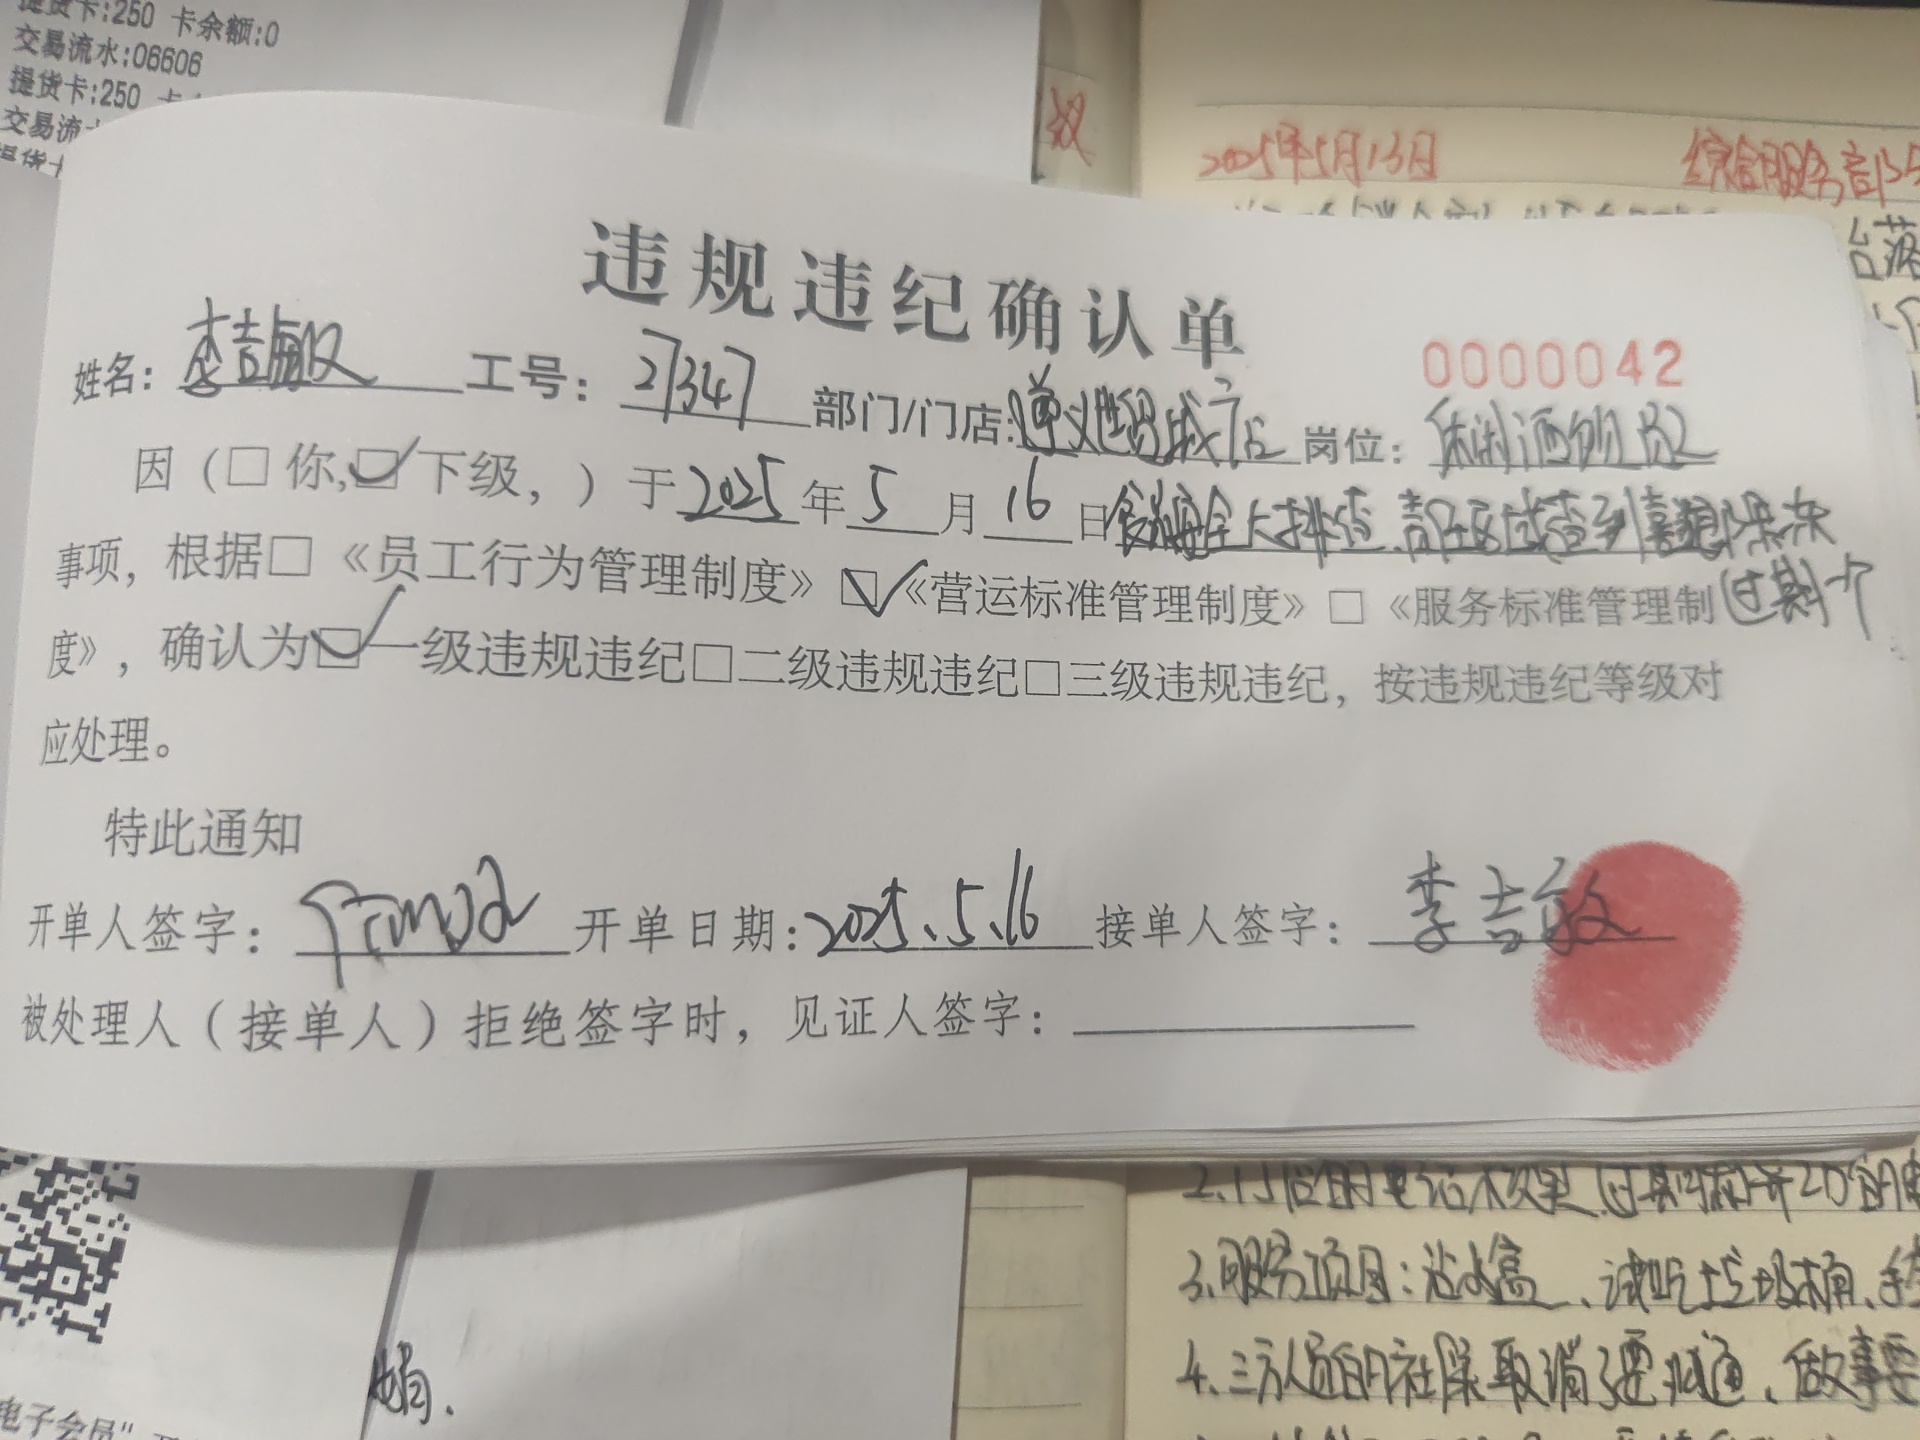 提货卡:250 卡余额:0
交易流水:06606
提货卡:250
交易流
2025年5月13日
综合服务部
违规违纪确认单
0000042
姓名：李吉敏 工号：27347 部门/门店:遵义世贸城店 岗位：休闲酒饮员工
因（□你,☑下级，）于2025年5月16日食品安全大排查，责任区域查到喜之郎果冻
事项，根据□《员工行为管理制度》☑《营运标准管理制度》□《服务标准管理制 过期1个
度》，确认为☑一级违规违纪□二级违规违纪□三级违规违纪，按违规违纪等级对
应处理。
特此通知
开单人签字： 开单日期:2025.5.16 接单人签字：李吉敏
被处理人（接单人）拒绝签字时，见证人签字：
3.服务项目：沾水盒、试吃垃圾桶、
4.三方人员的社保取消了要沟通、做事要
娟.
电子会员”